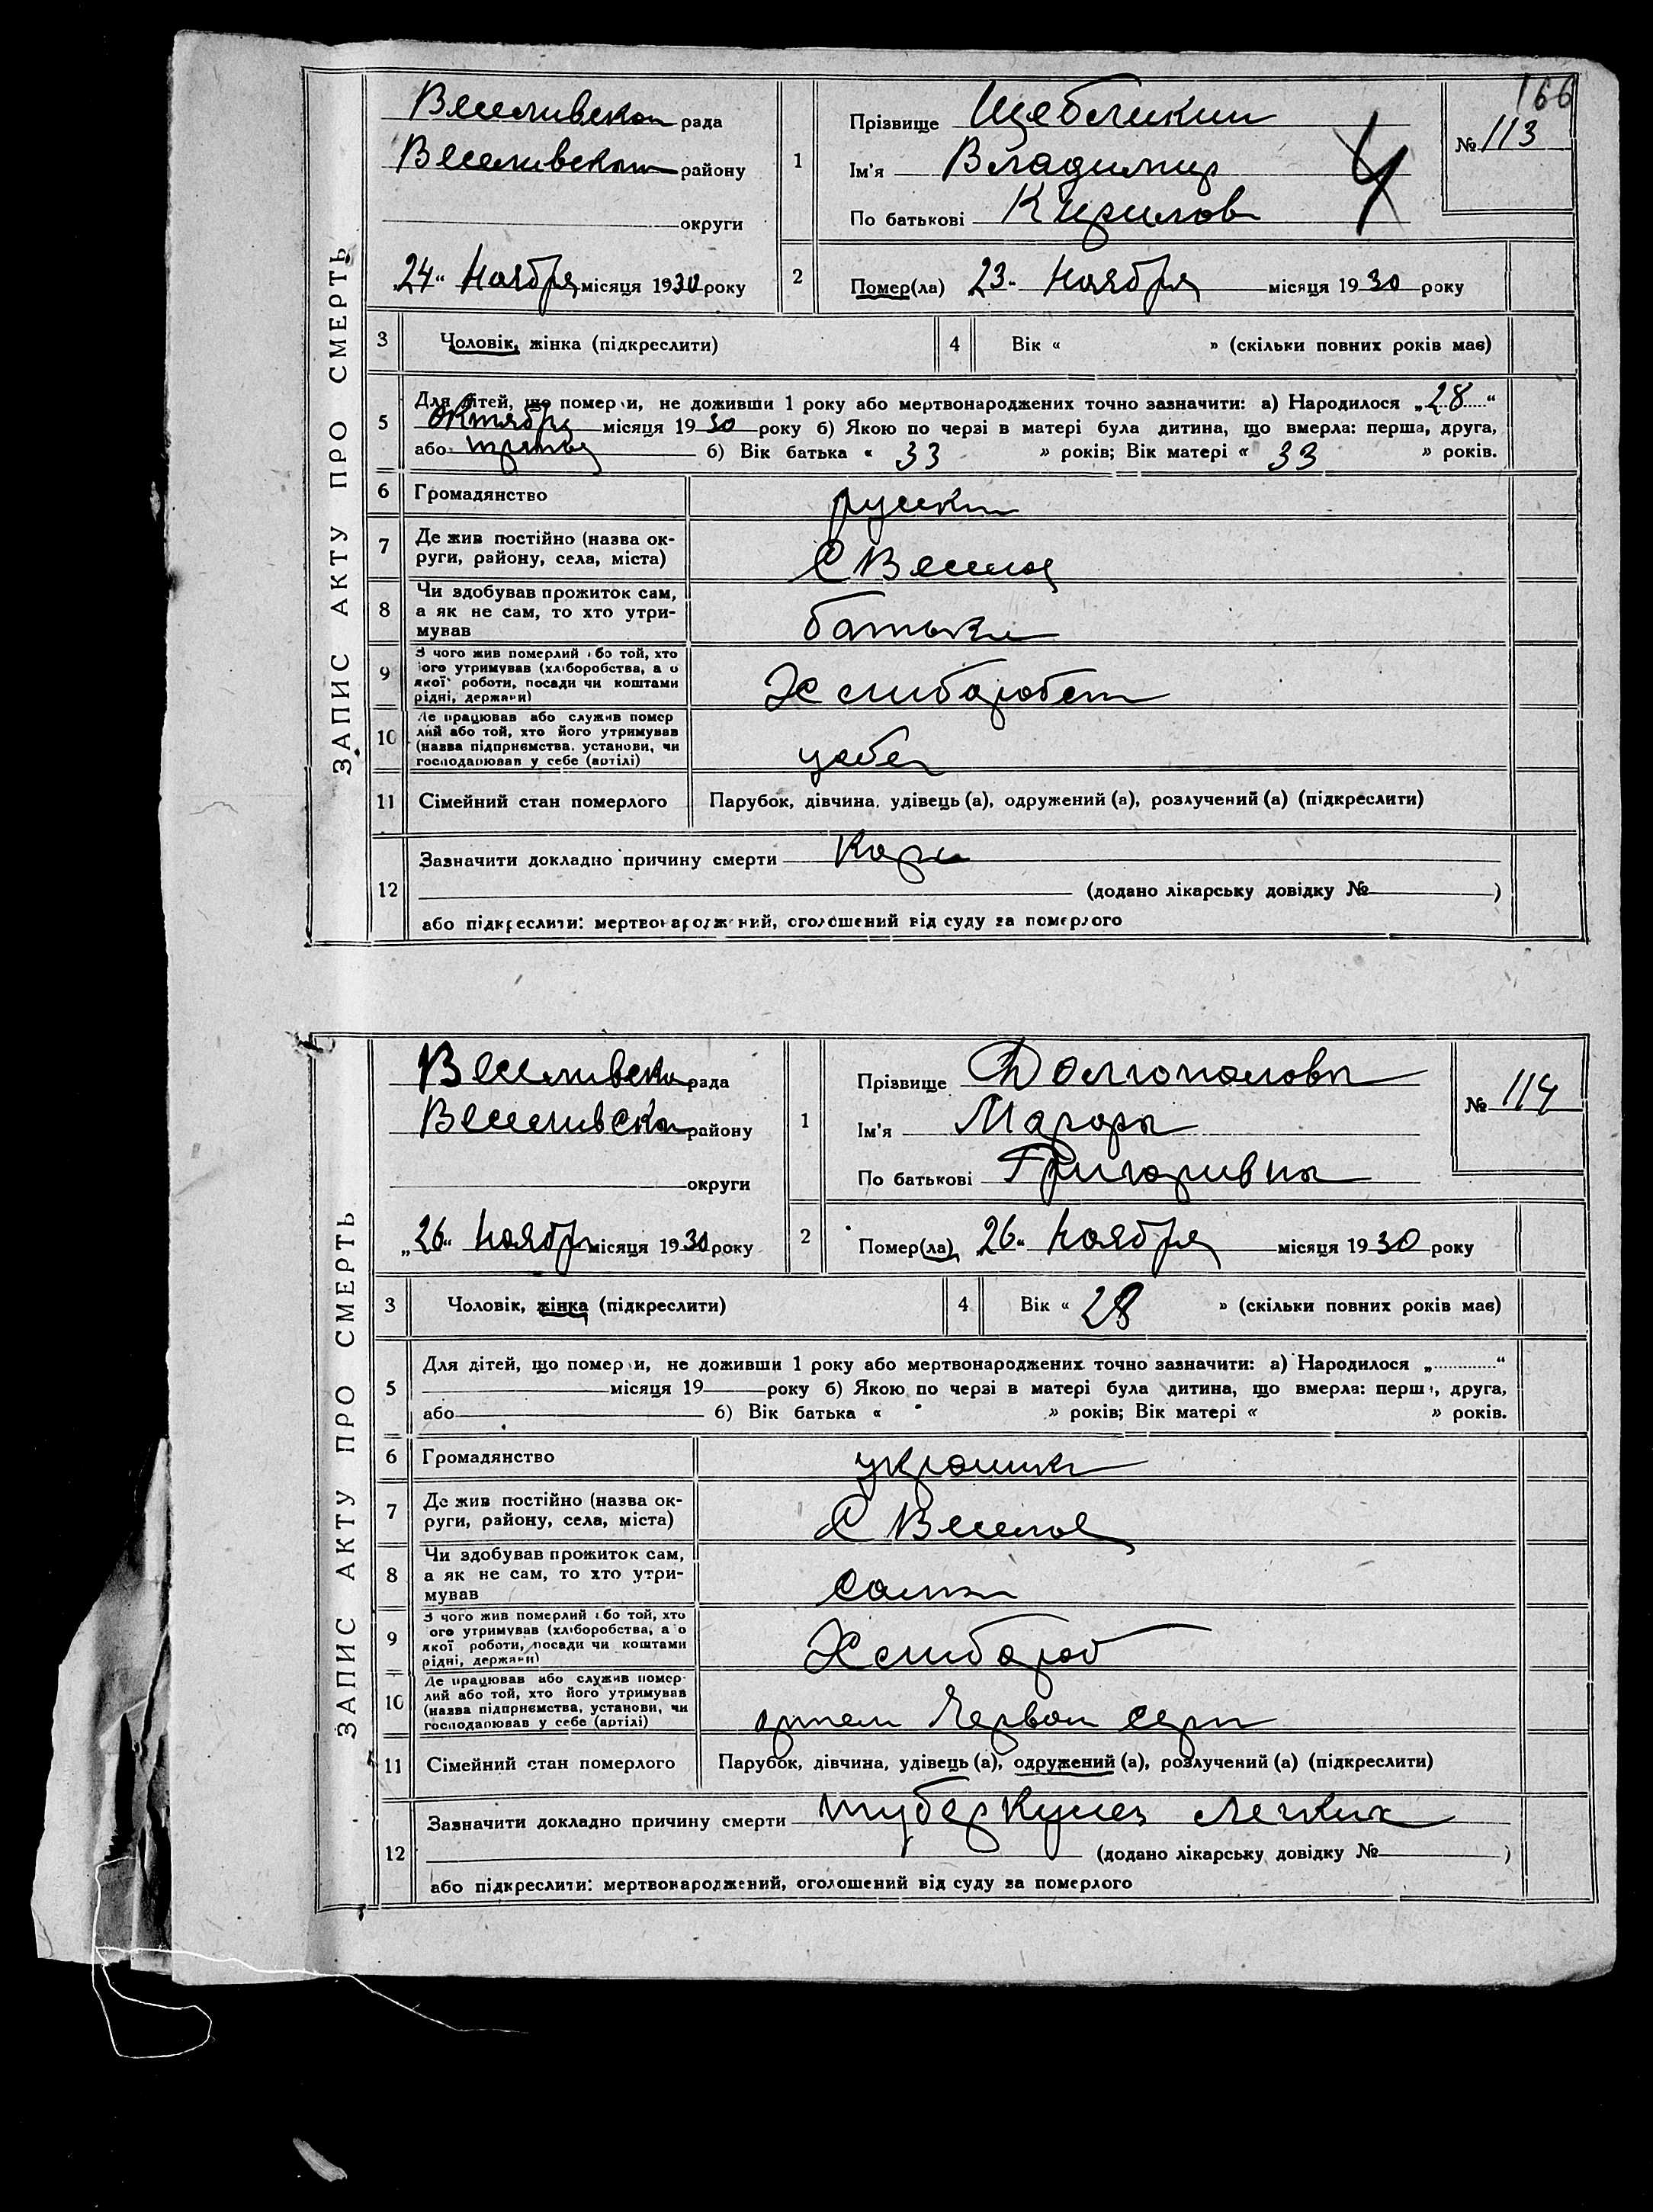 166
ЗАПИС АКТУ ПРО СМЕРТЬ
Веселивском рада
Веселивском району
округи
24 ноября місяця 1930 року
1
Прізвище Щебликин
Ім'я Владимир
По батькові Кирилов
№ 113
2
Помер(ла) 23 ноября місяця 1930 року
3 Чоловік, жінка (підкреслити)
4 Вік « » (скільки повних років має)
5
Для дітей, що померли, не доживши 1 року або мертвонароджених точно зазначити: а) Народилося „28“
октября місяця 1930 року б) Якою по черзі в матері була дитина, що вмерла: перша, друга,
або третья б) Вік батька « 33 » років; Вік матері « 33 » років.
6 Громадянство руски
7 Де жив постійно (назва ок-
руги, району, села, міста) С Веселое
8 Чи здобував прожиток сам,
а як не сам, то хто утри-
мував батьки
9 З чого жив померлий або той, хто
його утримував (хліборобства, а о
якої роботи, посади чи коштами
рідні, держави) Хлиборобст
10 Де працював або служив помер
лий або той, хто його утримував
(назва підприємства, установи, чи
господарював у себе (артілі) усебе
11 Сімейний стан померлого Парубок, дівчина, удівець (а), одружений (а), розлучений (а) (підкреслити)
12
Зазначити докладно причину смерти Кори
(додано лікарську довідку № )
або підкреслити: мертвонароджений, оголошений від суду за померлого
ЗАПИС АКТУ ПРО СМЕРТЬ
Веселивском рада
Веселивском району
округи
„26“ ноября місяця 1930 року
1
Прізвище Долгополова
Ім'я
По батькові Григоривна
№ 114
2
Помер(ла) 26 ноября місяця 1930 року
3 Чоловік, жінка (підкреслити)
4 Вік « 28 » (скільки повних років має)
5
Для дітей, що померли, не доживши 1 року або мертвонароджених точно зазначити: а) Народилося „ “
місяця 19 року б) Якою по черзі в матері була дитина, що вмерла: перша, друга,
або б) Вік батька « » років; Вік матері « » років.
6 Громадянство украинка
7 Де жив постійно (назва ок-
руги, району, села, міста) С Веселое
8 Чи здобував прожиток сам,
а як не сам, то хто утри-
мував сама
9 З чого жив померлий або той, хто
ого утримував (хліборобства, а о
якої роботи, посади чи коштами
рідні, держави) Хлибороб
10 Де працював або служив помер-
лий або той, хто його утримував
(назва підприємства, установи, чи
господарював у себе (артілі) артели Червон серп
11 Сімейний стан померлого Парубок, дівчина, удівець (а), одружений (а), розлучений (а) (підкреслити)
12
Зазначити докладно причину смерти туберкулез легких
(додано лікарську довідку № )
або підкреслити: мертвонароджений, оголошений від суду за померлого